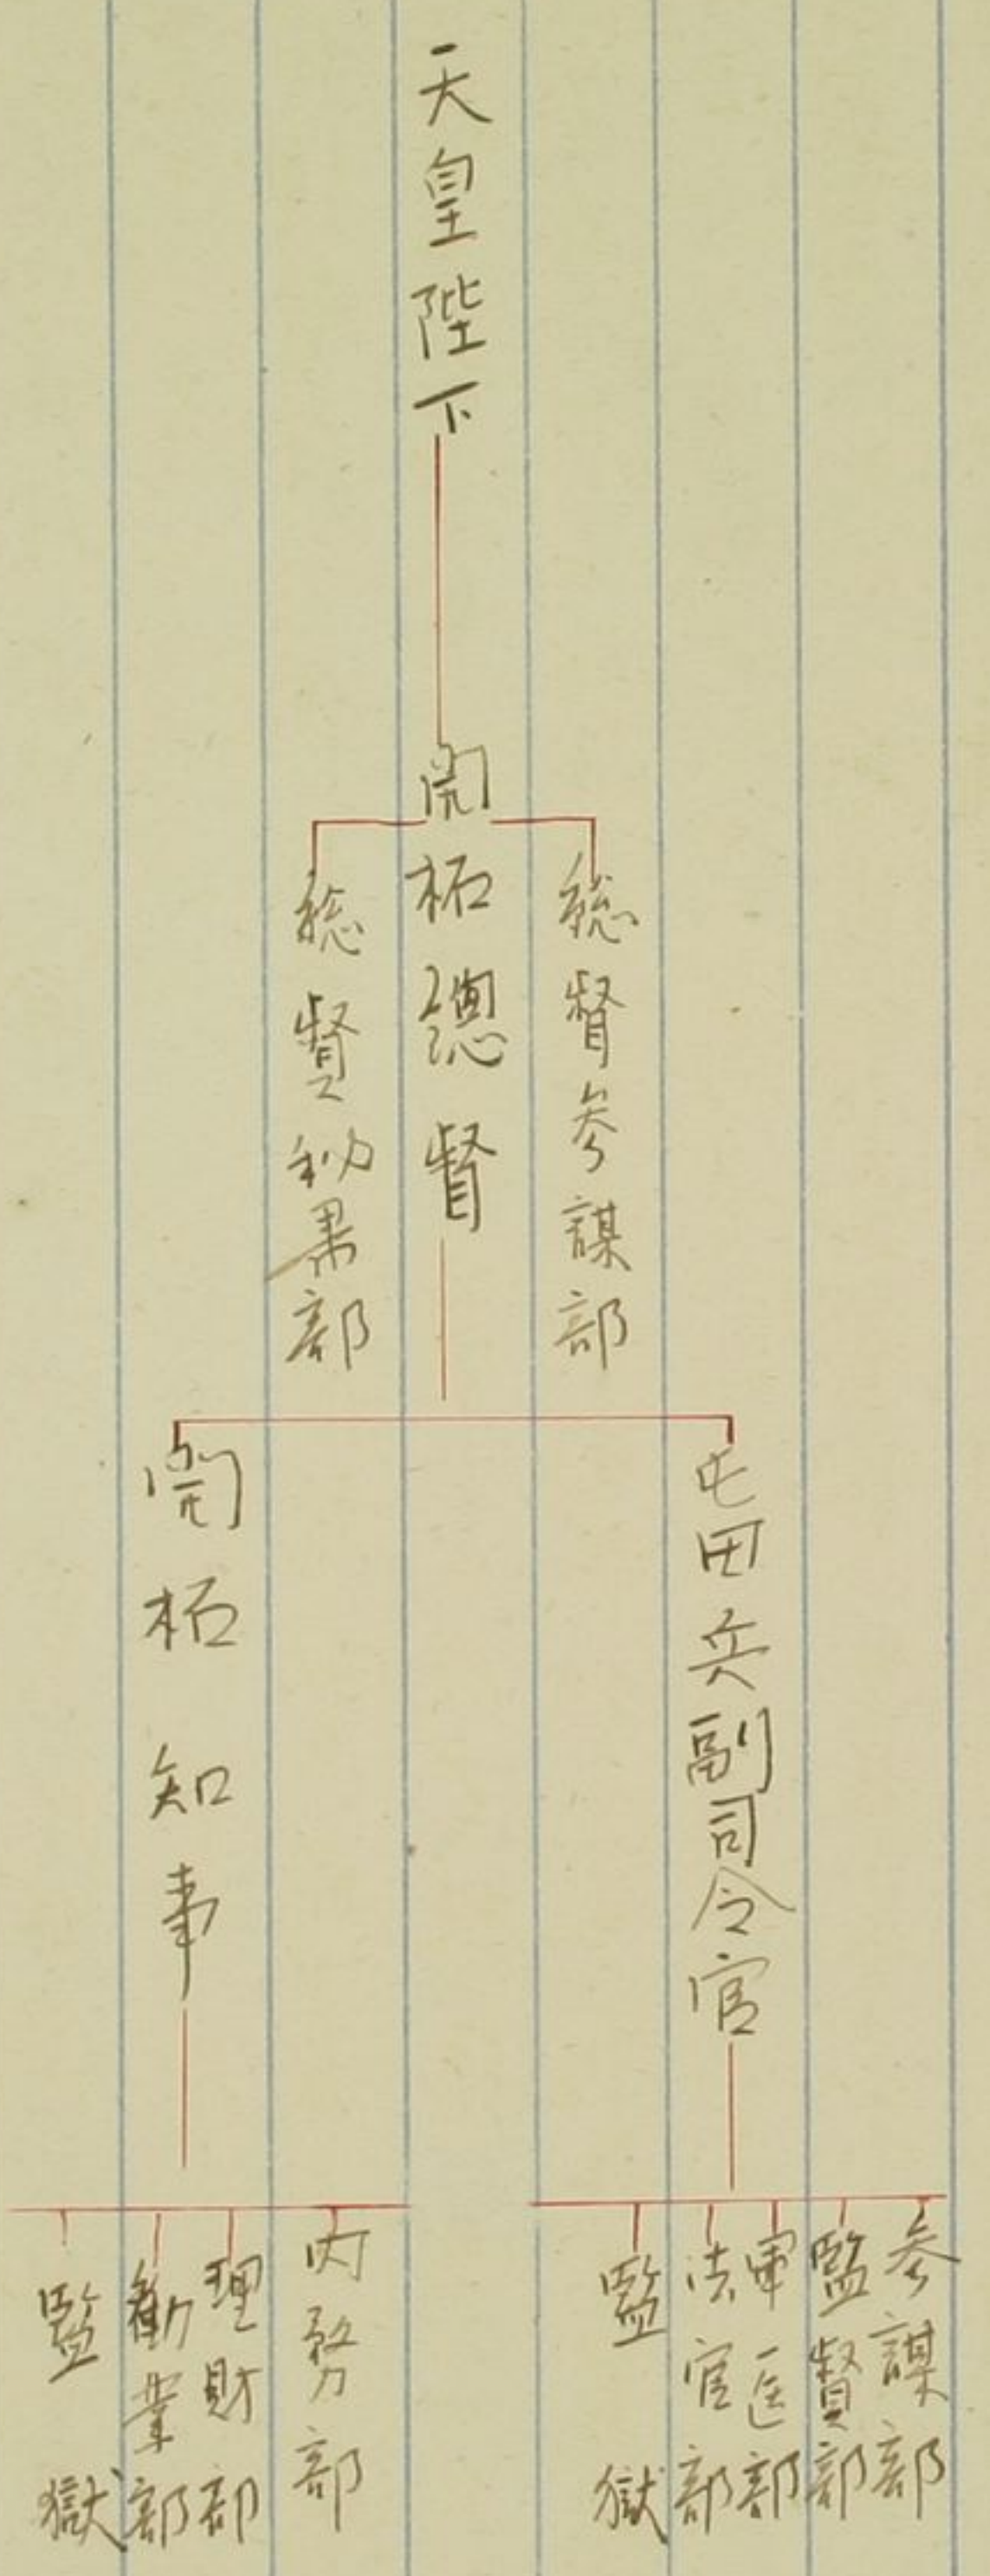 天皇陛下
開拓總督
総督参謀部
総督秘書部
屯田兵副司令官
開拓知事
参謀部
監督部
軍医部
法官部
監獄
内務部
理財部
勧業部
監獄